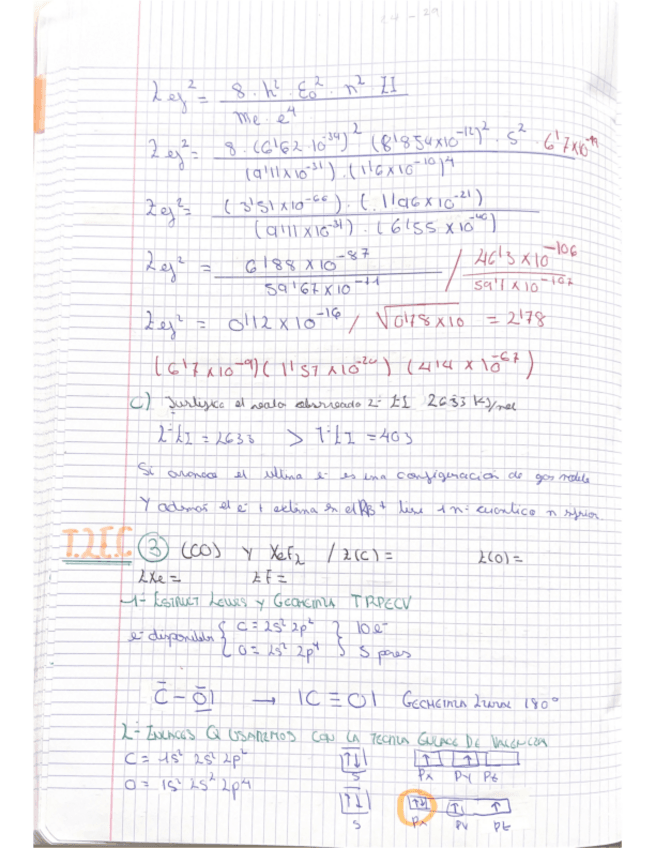 Zef² = 8·h²·ε₀²·n² II / me·e⁴
Zef² = 8·(6'62·10⁻³⁴)² (8'854x10⁻¹²)²·5²·6'7x10⁻¹⁹ / (9'11x10⁻³¹)·(1'6x10⁻¹⁹)⁴
Zef² = (3'51x10⁻⁶⁶)·(.1196x10⁻²¹) / (9'11x10⁻³¹)·(6'55x10⁻⁴⁰)
Zef² = 6'88x10⁻⁸⁷ / 59'67x10⁻⁷¹ / 46'3x10⁻¹⁰⁶ / 59'7x10⁻¹⁰⁷
Zef² = 0'12x10⁻¹⁶ / √0'78x10 = 2'78
(6'7x10⁻⁹)(1'57x10⁻²⁰)(4'4x10⁻⁶⁷)
C) Justifica el observado 2ª EI 2633 KJ/mol
2ª EI = 2633 > 1ª EI = 403
Si arrancas el último e⁻ es una configuración de gas noble
Y además el e⁻ en el Rb⁺ tiene 1 nº cuántico n
T.2 E.C ③ (CO) Y XeF₂ / Z(C) = Z(O) =
ZXe = ZF =
1- ESTRUCT LEWIS Y GEOMETRIA TRPECV
e⁻ disponibles { C = 2s² 2p² } 10 e⁻
{ O = 2s² 2p⁴ } 5 pares
C̄ - Ō| → |C ≡ O| GEOMETRIA LINEAL 180°
2- ENLACES Q USAREMOS CON LA TEORIA ENLACE DE VALENCIA
C = 1s² 2s² 2p² ↑↓ ↑ ↑
S Px Py Pz
O = 1s² 2s² 2p⁴ ↑↓ ↑↓ ↑ ↑
S Px Py Pz